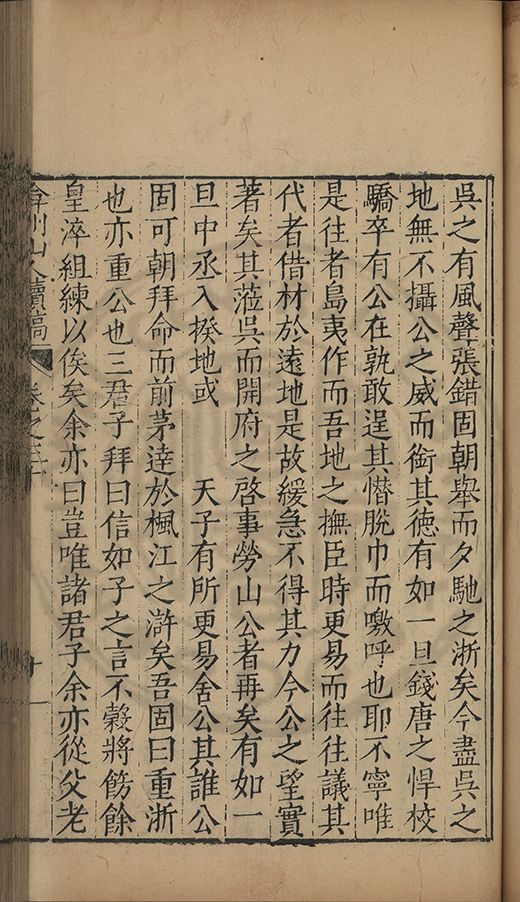 吳之有風聲張錯固朝舉而夕馳之浙矣今盡吳之
地無不攝公之威而銜其德有如一旦錢唐之悍校
驕卒有公在孰敢逞其憯脫巾而噭呼也耶不寧唯
是往者島夷作而吾地之撫臣時更易而往往議其
代者借材於遠地是故緩急不得其力今公之望實
著矣其蒞吳而開府之啓事勞山公者再矣有如一
旦中丞入揆地或　天子有所更易舍公其誰公
固可朝拜命而前茅逹於楓江之滸矣吾固曰重浙
也亦重公也三君子拜曰信如子之言不穀將飭餘
皇淬組練以俟矣余亦曰豈唯諸君子余亦從父老
弇州山人續稿 卷之三十